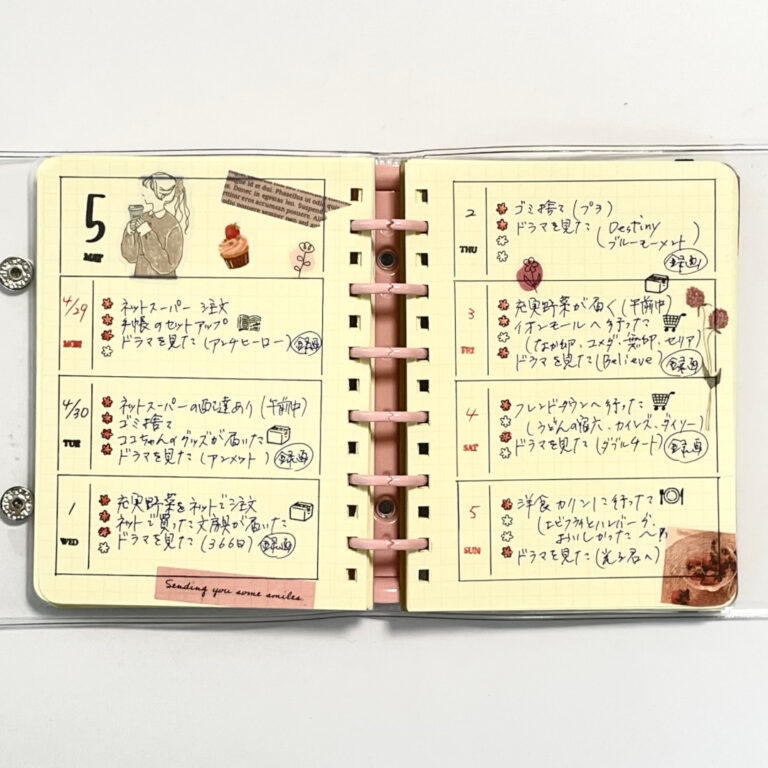 5
MAY
4/29
MON
ネットスーパー 注文
手帳のセットアップ
ドラマを見た(アンチヒーロー) 録画
4/30
TUE
ネットスーパーの配達あり(午前中)
ゴミ捨て
ココちゃんのグッズが届いた
ドラマを見た(アンメット) 録画
1
WED
充実野菜をネットで注文
ネットで買った文房具が届いた
ドラマを見た(366日) 録画
Sending you some smiles
2
THU
ゴミ捨て(プラ)
ドラマを見た(Destiny
ブルーモーメント)
録画
3
FRI
充実野菜が届く(午前中)
イオンモールへ行った
(なか卯・コメダ・無印・セリア)
ドラマを見た(Believe) 録画
4
SAT
フレンドタウンへ行った
(うどんの宿六・カインズ・ダイソー)
ドラマを見た(ダブルチート) 録画
5
SUN
洋食カリンに行った
(エビフライとハンバーグ。
おいしかった〜
ドラマを見た(光る君へ)